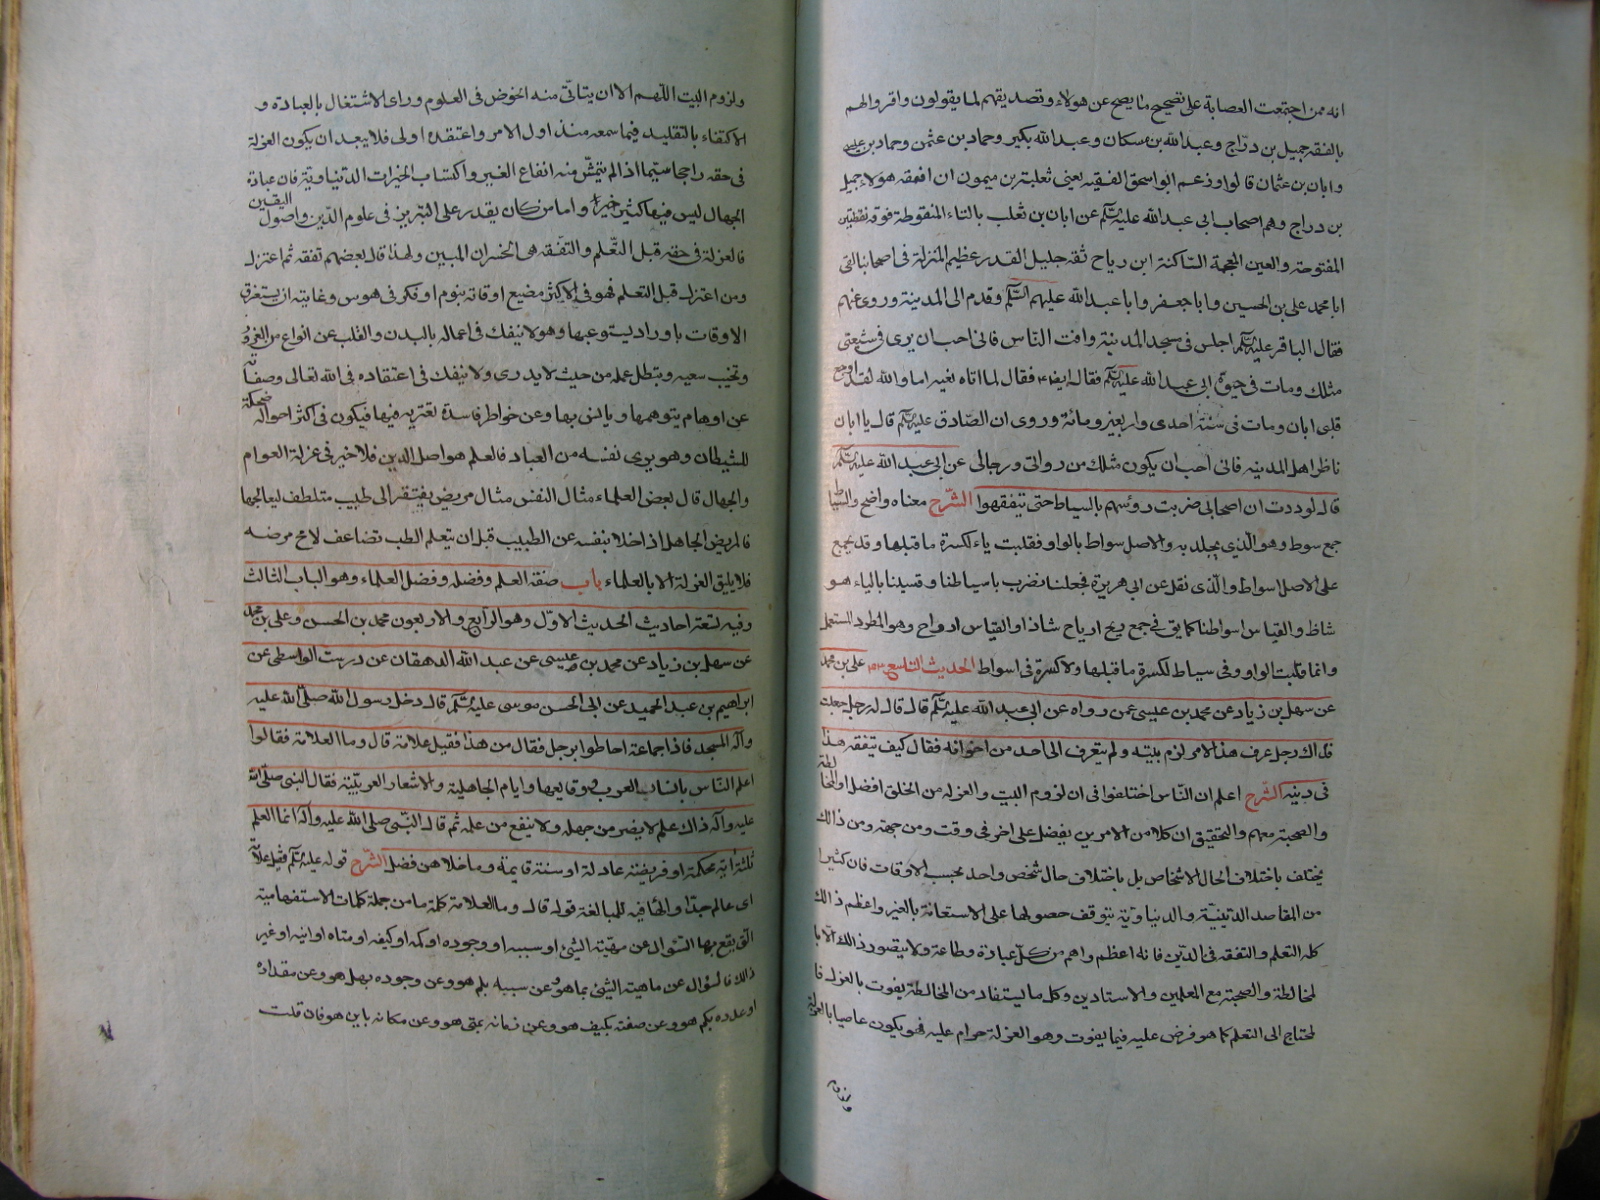 انه ممن اجتمعت العصابة على تصحيح ما يصح عن هولاء وتصديقهم لما يقولون واقروا لهم
بالفقه جميل بن درّاج وعبد الله بن مسكان وعبد الله بكير وحماد بن عثمن وحماد بن عيسى
وابان بن عثمان قالوا وزعم ابو اسحق الفقيه يعنى ثعلبة بن ميمون ان افقه هولاء جميل
بن دراج وهم اصحاب ابى عبد الله عليه السلم عن ابان بن تغلب بالتاء المنقوطة فوقه نقطتين
المفتوحة والغين المعجمة الساكنة ابن رياح ثقة جليل القدر عظيم المنزلة فى اصحابنا لقى
ابا محمد على بن الحسين وابا جعفر وابا عبد الله عليهم السلم وقدم الى المدينة وروى عنهم
فقال الباقر عليه السلم اجلس فى مسجد المدينة وافت الناس فانى احب ان يرى فى شيعتى
مثلك ومات فى حيوة ابى عبد الله عليه السلم فقال لما اتاه نعيه اما والله لقد اوجع
قلبى ابان ومات فى سنة احدى واربعين ومائة وروى ان الصّادق عليه السلم قال يا ابان
ناظر اهل المدينه فانى احب ان يكون مثلك من رواتى ورجالى عن ابى عبد الله عليه السلم
قال لوددت ان اصحابى ضربت رؤسهم بالسياط حتى يتفقهوا الشّرح معناه واضح والسّياط
جمع سوط وهو الّذى يجلد به والاصل سواط بالواو فقلبت ياء لكسرة ما قبلها وقد يجمع
على الاصل اسواط والّذى نقل عن ابى هريرة فجعلنا نضرب باسياطنا وقسينا بالياء هو
شاذ والقياس اسواطنا كما يق فى جمع ريح ارياح شاذ او القياس ارواح وهو المطرد المستعمل
وانما قلبت الواو فى سياط لكسرة ما قبلها ولا كسرة فى اسواط الحديث التاسع على بن محمد
عن سهل بن زياد عن محمد بن عيسى عمن رواه عن ابى عبد الله عليه السلم قال قال له رجل جعلت
فداك رجل عرف هذا الامر لزم بيته ولم يتعرف الى احد من اخوانه فقال كيف يتفقه هذا
فى دينه الشّرح اعلم ان النّاس اختلفوا فى ان لزوم البيت والعزله من الخلق افضل او المخالطة
والصحبة معهم والتحقيق ان كلا من الامرين يفضل على اخر فى وقت ومن جهة ومن ذالك
يختلف باختلاف الحال الاشخاص بل باختلاف حال شخص واحد بحسب الاوقات فان كثيرا
من المقاصد الدّينيّة والدنياويّة يتوقف حصولها على الاستعانة بالغير واعظم ذالك
كله التعلم والتفقه فى الدّين فانه اعظم واهم من كلّ عبادة وطاعة ولا يتصور ذالك الّا با
لمخالطة والصحبة مع المعلمين والاستادين وكل ما يستفاد من المخالطة يفوت بالعزلة فا
لمحتاج الى التعلم كما هو فرض عليه فيما يفوت وهو العزلة حرام عليه فهو يكون عاصيا بالعزلة
ولزوم
ولزوم البيت اللّهم الا ان يتاتّى منه الخوض فى العلوم وراى الاشتغال بالعبادة و
الاكتفاء بالتقليد فيما سمعه منذ اول الامر واعتقده اولى فلا يبعد ان يكون العزلة
فى حقه راجحا سيّما اذا لم يتمشّ منه انفاع الغير واكتساب الخيرات الدنياويّة فان عبادة
الجهال ليس فيها كثير خير واما من كان يقدر على التبريز فى علوم الدّين واصول اليقين
فالعزلة فى حقه قبل التّعلم والتّفقه هى الخسران المبين ولهذا قال بعضهم تفقه ثم اعتزل
ومن اعتزل قبل التعلم فهو فى الاكثر مضيع اوقاته بنوم او فكر فى هوس وغايته ان يستغرق
الاوقات باوراد يستوعبها وهو لا ينفك فى اعماله بالبدن والقلب عن انواع من الغرور
وتخيب سعيه وبطل عمله من حيث لا يدرى ولا ينفك فى اعتقاده فى الله تعالى وصفاته
عن اوهام يتوهمها ويانس بها وعن خواطر فاسدة تعتريه فيها فيكون فى اكثر احواله ضحكة
للشيطان وهو يرى نفسه من العباد فالعلم هو اصل الدين فلا خير فى عزلة العوام
والجهال قال بعض العلماء مثال النفس مثال مريض يفتقر الى طبيب متلطف ليعالجها
فالمريض الجاهل اذا خلا بنفسه عن الطبيب قبل ان يتعلم الطب تضاعف لا مح مرضه
فلا يليق العزلة الا بالعلماء باب صفة العلم وفضله وفضل العلماء وهو الباب الثالث
وفيه تسعة احاديث الحديث الاوّل وهو الرّابع والاربعون محمد بن الحسن وعلى بن محمد
عن سهل بن زياد عن محمد بن عيسى عن عبد الله الدهقان عن درست الواسطى عن
ابراهيم بن عبد الحميد عن ابى الحسن موسى عليه السلم قال دخل رسول الله صلى الله عليه
وآله المسجد فاذا جماعة احاطوا برجل فقال من هذا فقيل علامة قال وما العلامة فقالوا
اعلم النّاس بانساب العرب ووقايعها وايام الجاهلية والاشعار العربيّة فقال النبى صلى الله
عليه وآله ذاك علم لا يضر من جهله ولا ينفع من علمه ثم قال النّبى صلى الله عليه وآله انما العلم
ثلثة آية محكمة او فريضة عادلة او سنة قايمة وما خلاهن فضل الشّرح قوله عليه السلم فقيل علامة
اى عالم جدّا والهاء فيه للمبالغة قوله قال وما العلامة كلمة ما من جملة كلمات الاستفهامية
الّتى يقع بها السّؤال عن مهيّة الشيئ او سببه او وجوده او كمه او كيفه او متاه او اينه او غير
ذالك فالسؤال عن ماهية الشيئ بما هو وعن سببه بلم هو وعن وجوده بهل هو وعن مقداره
او عدده بكم هو وعن صفته بكيف هو وعن زمانه بمتى هو وعن مكانه باين هو فان قلت